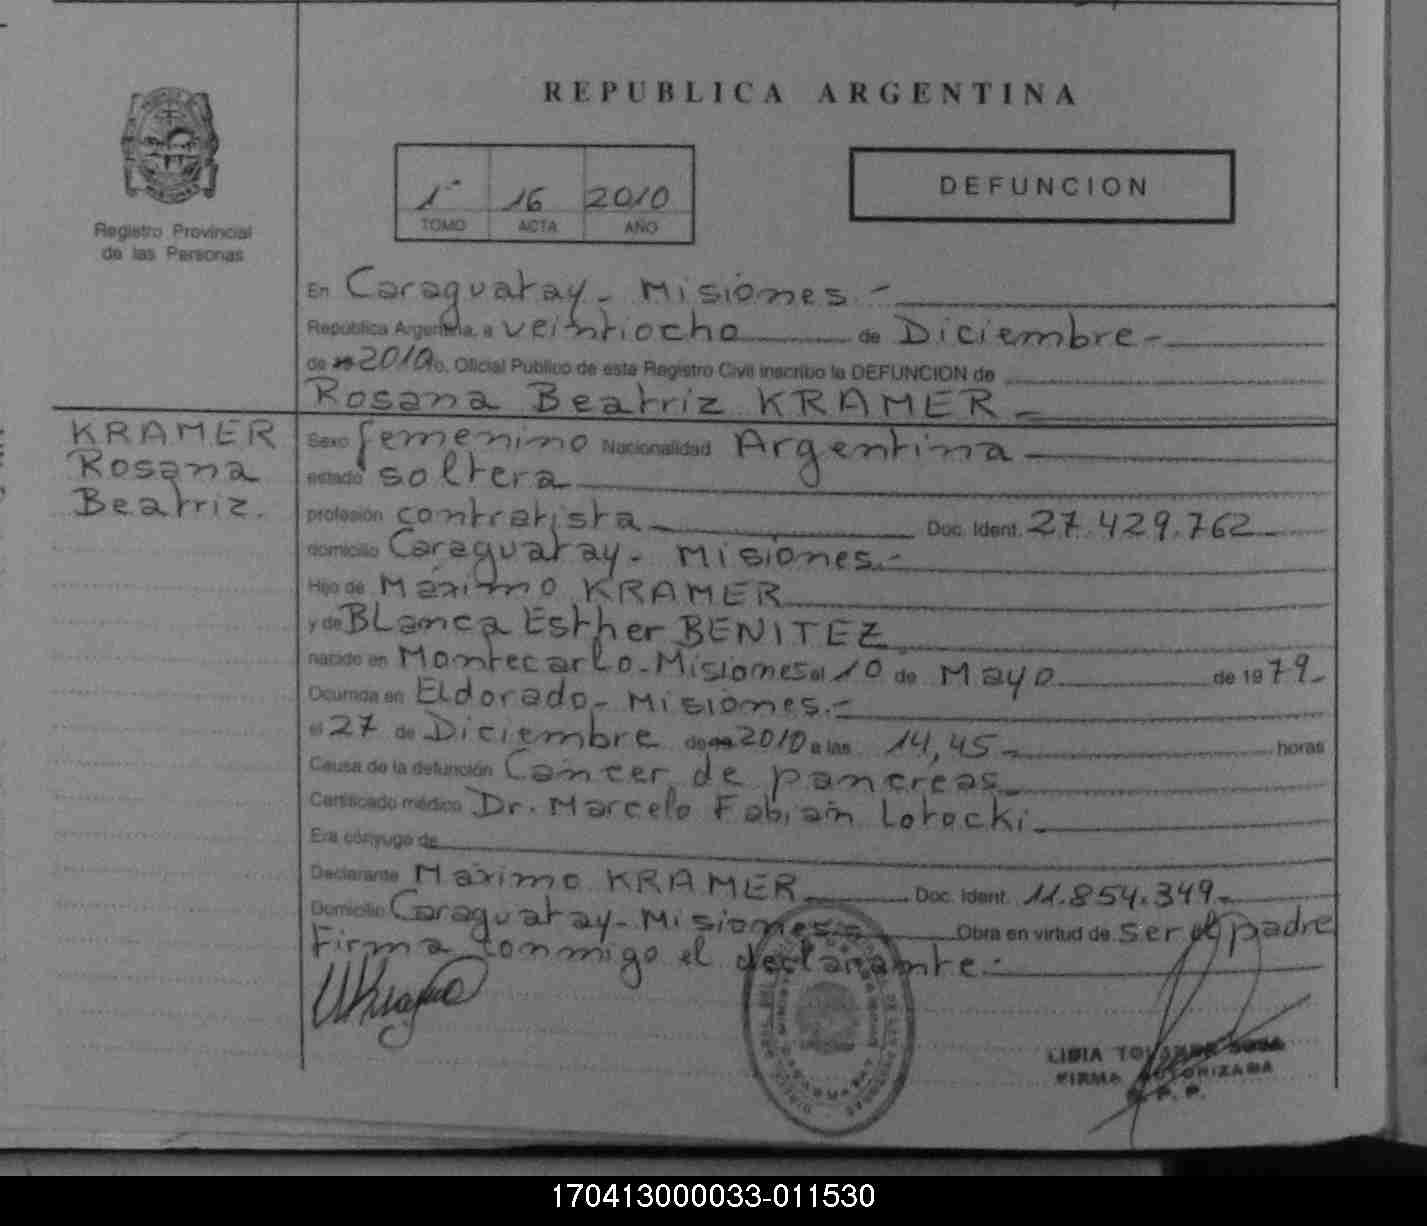 REPUBLICA ARGENTINA
1º 16 2010
TOMO ACTA AÑO
DEFUNCION
Registro Provincial
de las Personas
En Caraguatay - Misiones.-
República Argentina, a veintiocho de Diciembre-
de 2010 yo, Oficial Público de este Registro Civil inscribo la DEFUNCION de
Rosana Beatriz KRAMER-
KRAMER
Rosana
Beatriz.
Sexo femenino Nacionalidad Argentina-
estado soltera
profesión contratista- Doc. Ident. 27.429.762
domicilio Caraguatay - Misiones.-
Hijo de Máximo KRAMER
y de BLanca Esther BENITEZ
nacido en Montecarlo - Misiones el 10 de Mayo de 1979-
Ocurrida en Eldorado - Misiones.-
el 27 de Diciembre de 2010 a las 14,45- horas
Causa de la defunción Cancer de pancreas-
Certificado médico Dr. Marcelo Fabián Lotocki-
Era cónyuge de
Declarante Máximo KRAMER Doc. Ident. 11.854.349-
Domicilio Caraguatay - Misiones- Obra en virtud de ser el padre
Firma conmigo el declarante.-
LIDIA
FIRMA AUTORIZADA
R. P. P.
170413000033-011530